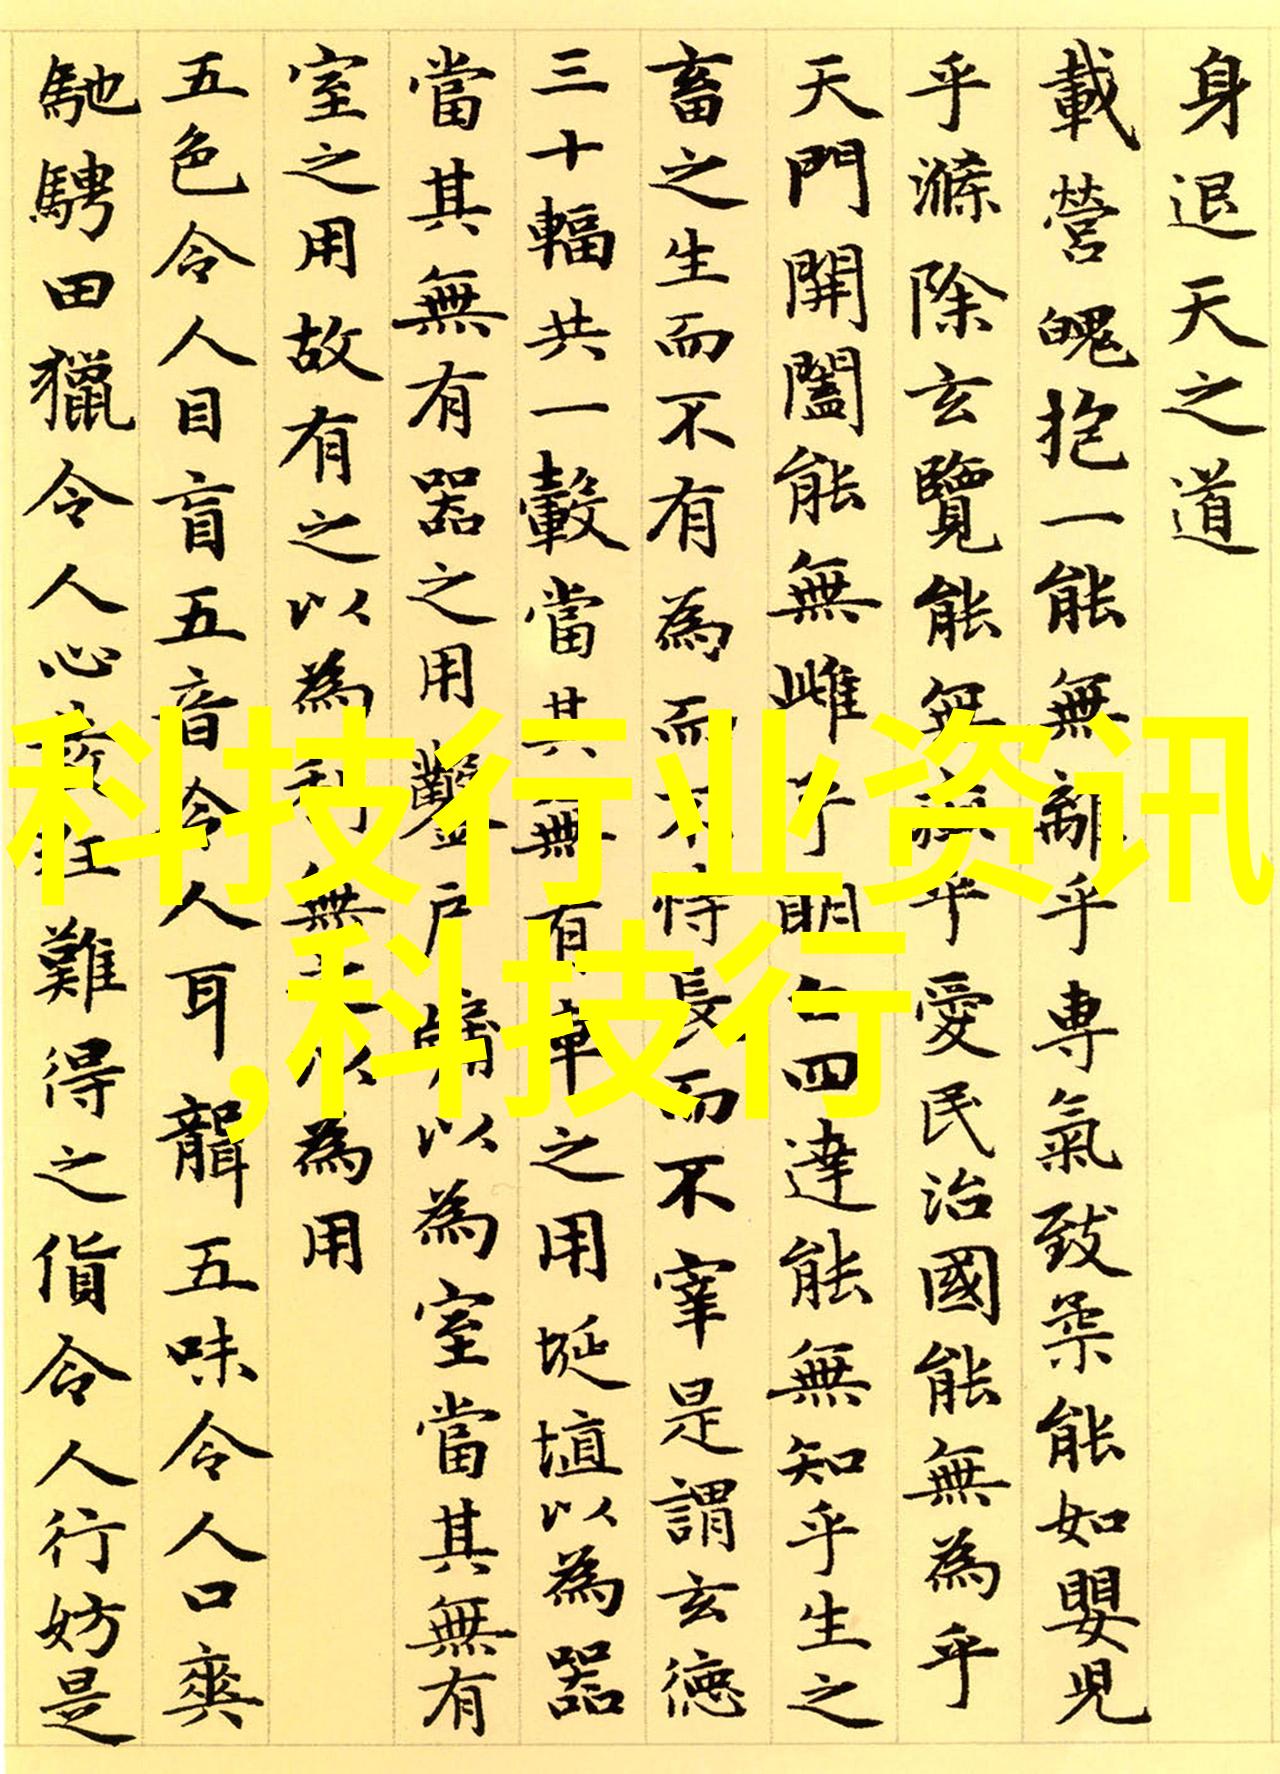 身退天之道
載營魄抱一能無離乎專氣致柔能如嬰兒
乎滌除玄覽能無疵乎愛民治國能無為乎
天門開闔能無雌乎明白四達能無知乎生之
畜之生而不有為而不恃長而不宰是謂玄德
三十輻共一轂當其無有車之用埏埴以為器
當其無有器之用鑿戶牖以為室當其無有
室之用故有之以為利無之以為用
五色令人目盲五音令人耳聾五味令人口爽
馳騁田獵令人心發狂難得之貨令人行妨是
科技行业资讯
,科技行